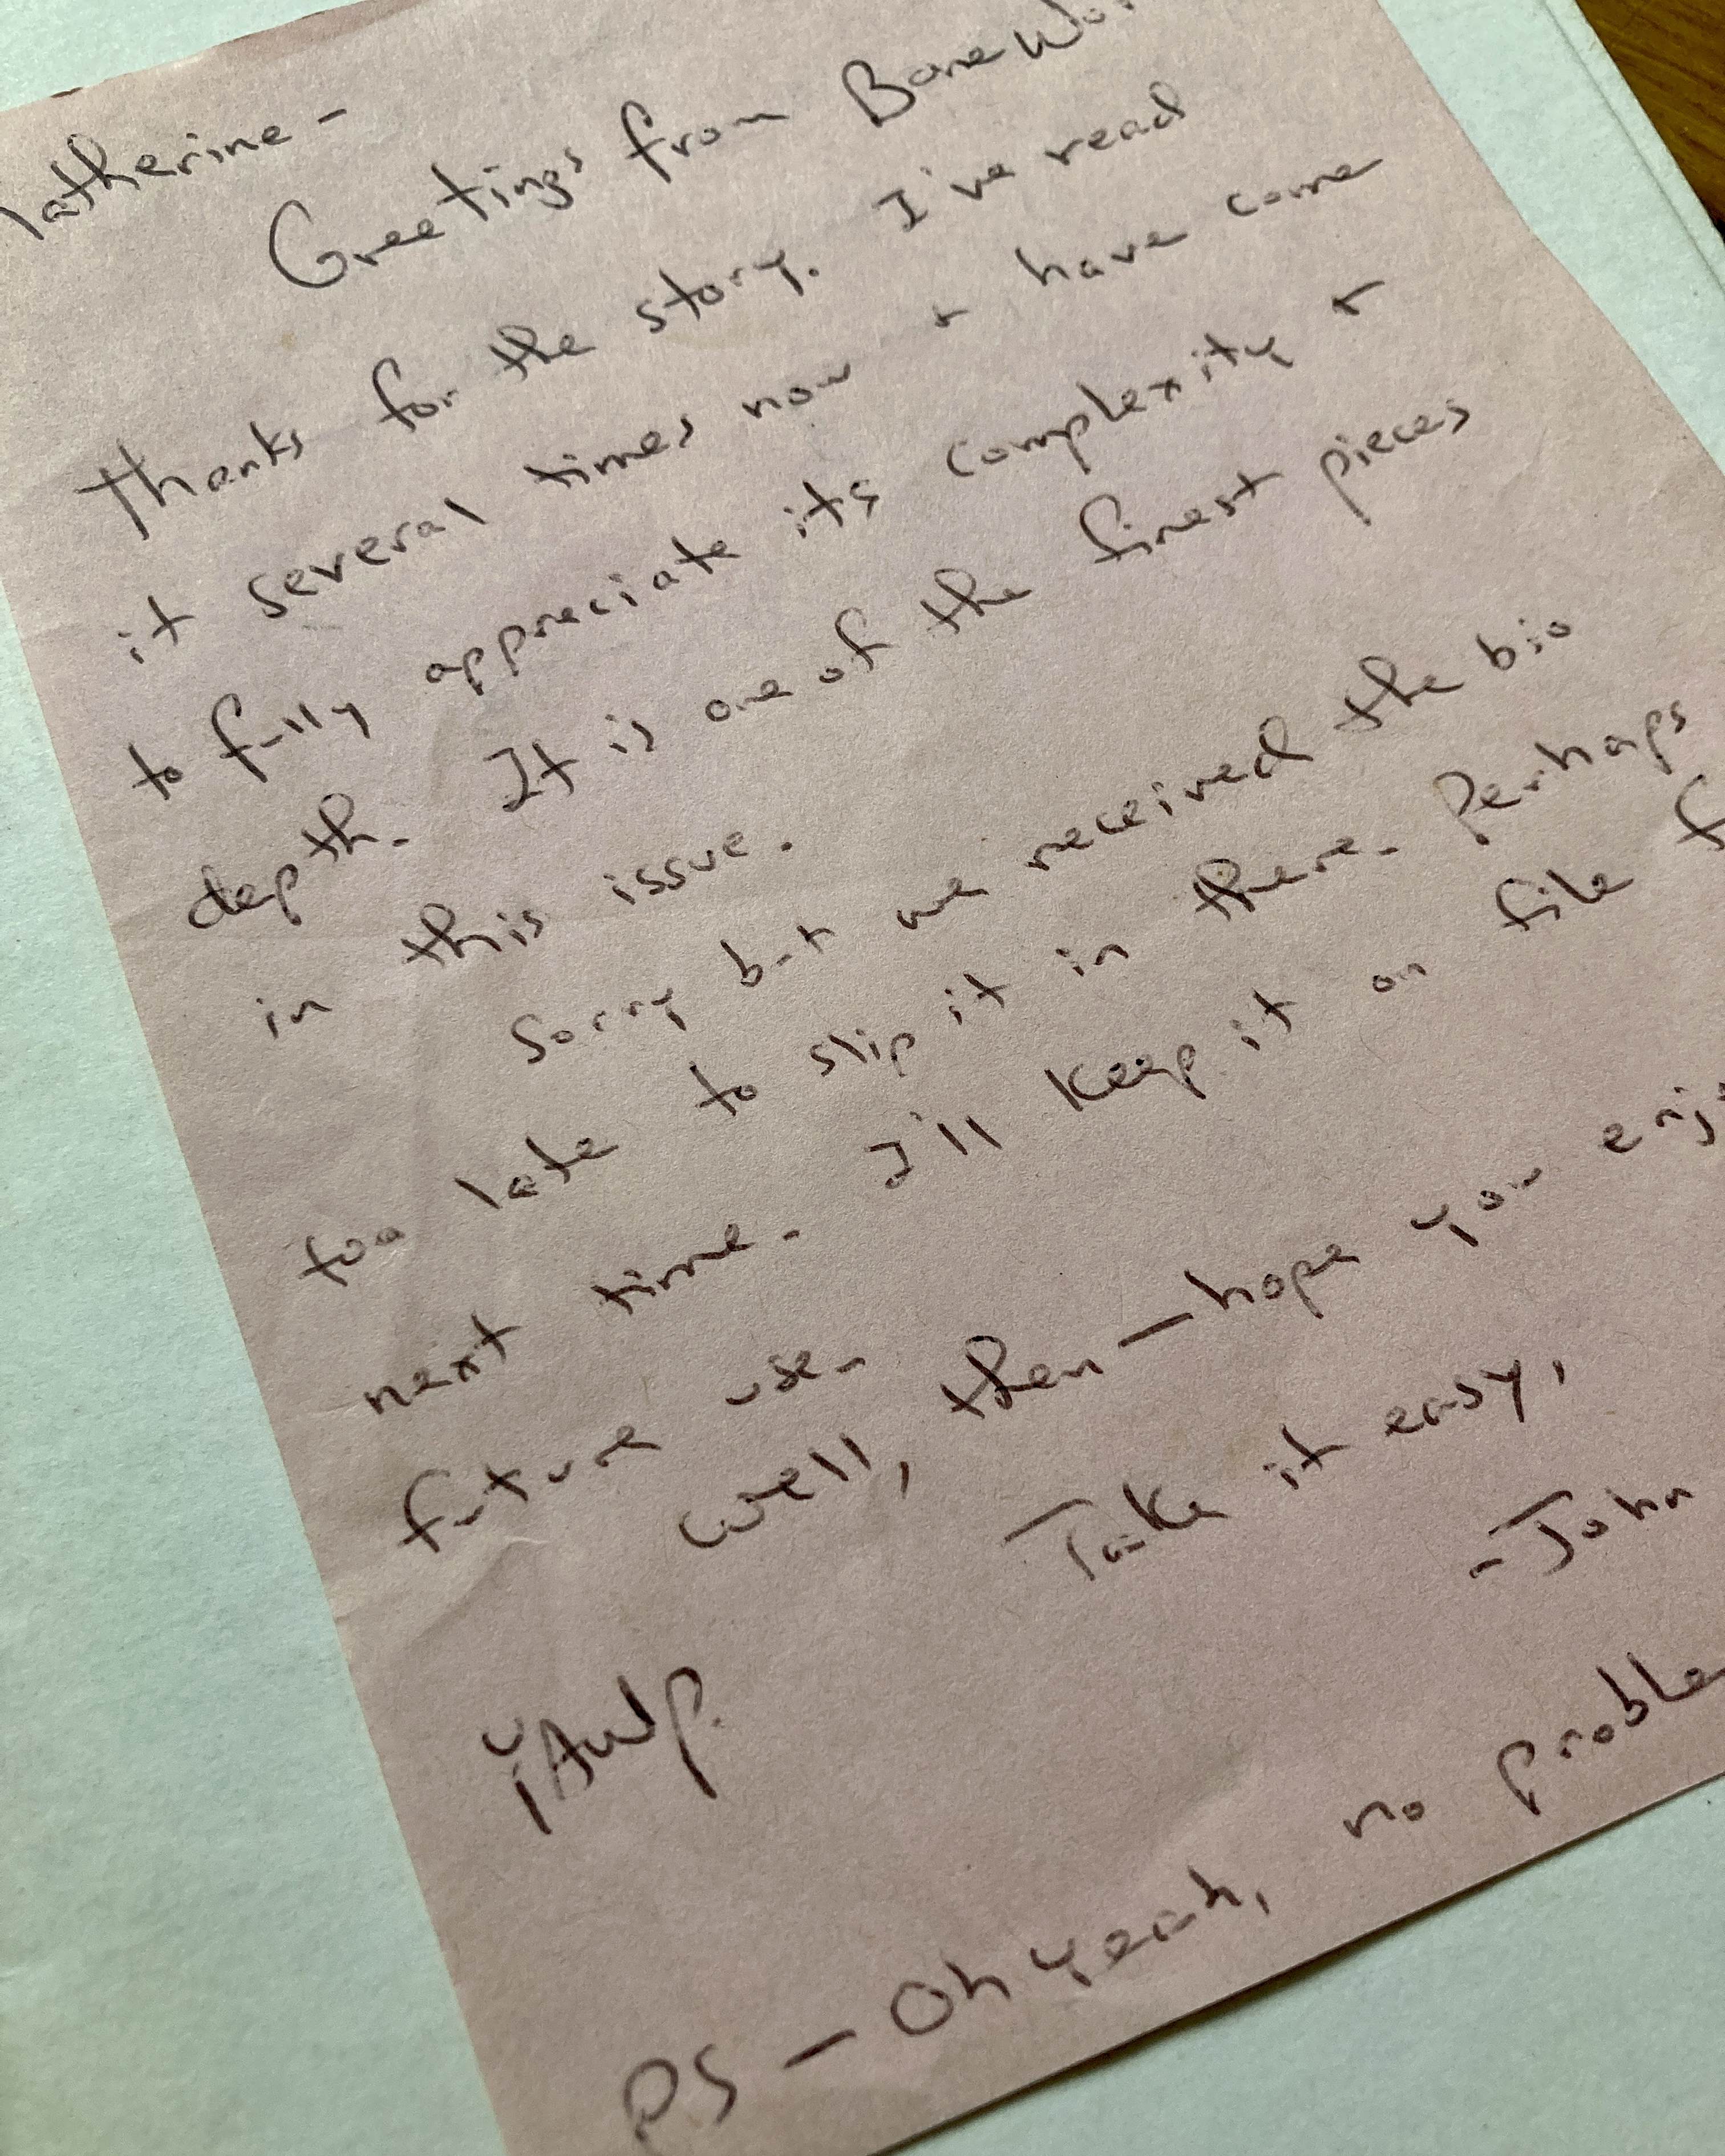 Katherine -
Greetings from Bone Wo
Thanks for the story. I've read
it several times now + have come
to fully appreciate its complexity +
depth. It is one of the finest pieces
in this issue.
Sorry but we received the bio
too late to slip it in there. Perhaps
next time. I'll keep it on file f
future use.
Well, then — hope you enj
Take it easy,
- John
PS — Oh yeah, no proble